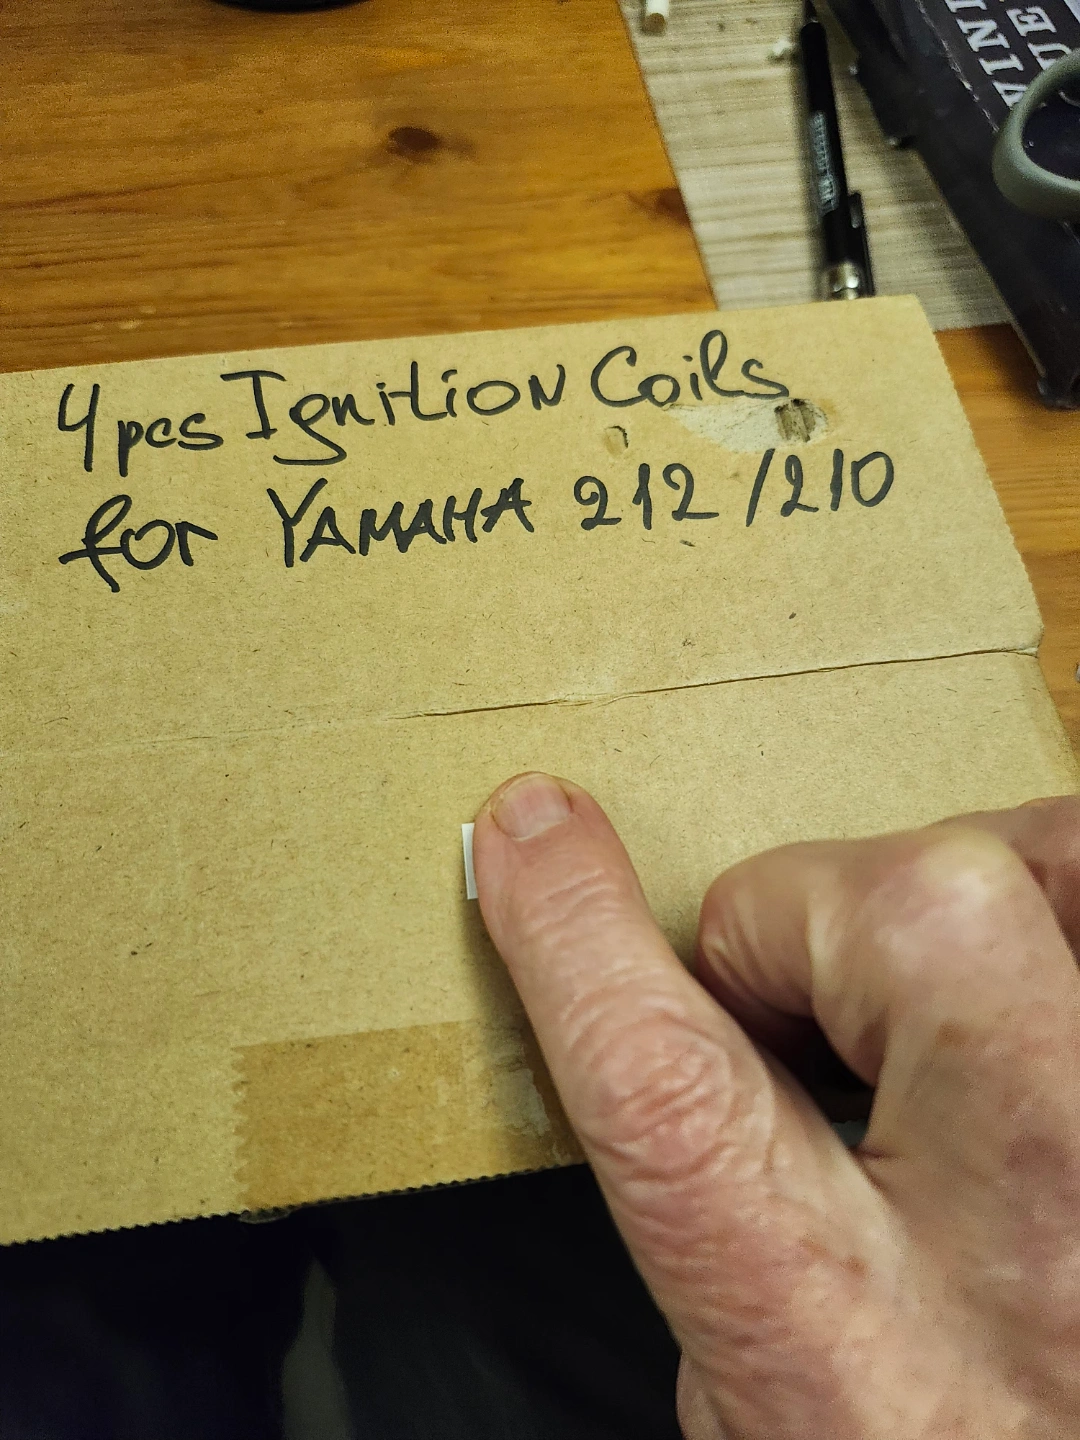 4pcs Ignition Coils
for YAMAHA 212/210